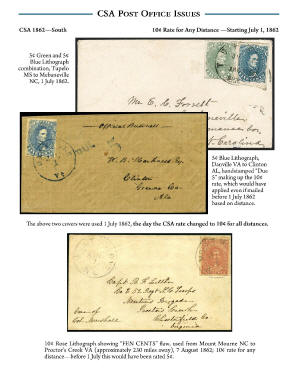 CSA POST OFFICE ISSUES
CSA 1862—South
10¢ Rate for Any Distance —Starting July 1, 1862
5¢ Green and 5¢
Blue Lithograph
combination, Tupelo
MS to Mebaneville
NC, 1 July 1862.
Mr. E. C. Forrest
Carolina
Official Business
W. B. Marshall Esq.
Clinton
Greene Co.
Ala
5¢ Blue Lithograph,
Danville VA to Clinton
AL, handstamped "Due
5" making up the 10¢
rate, which would have
applied even if mailed
before 1 July 1862
based on distance.
The above two covers were used 1 July 1862, the day the CSA rate changed to 10¢ for all distances.
Capt. B. F. Little
Co E 52 Regt N C Troops
Proctors Creek
Chesterfield Co
Virginia
Care of
Col. Marshall
10¢ Rose Lithograph showing "FEN CENTS" flaw, used from Mount Mourne NC to
Proctor's Creek VA (approximately 230 miles away), 7 August 1862; 10¢ rate for any
distance—before 1 July this would have been rated 5¢.